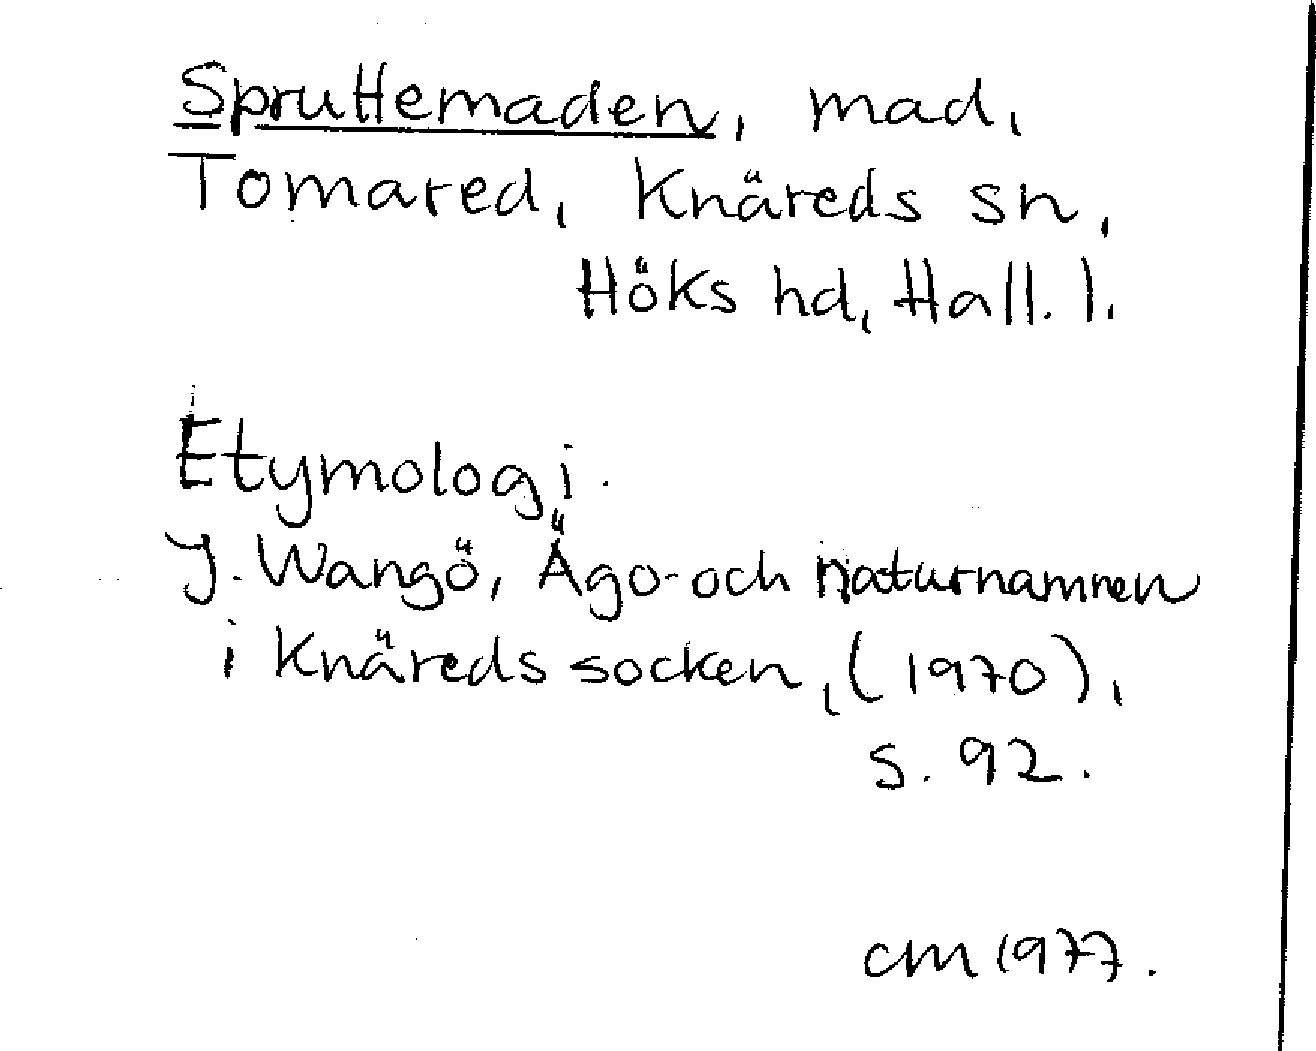 Spruttemaden, mad,
Tomared, Knäreds sn,
Höks hd, Hall. l.
Etymologi.
J. Wangö, Ägo- och naturnamnen
i Knäreds socken, (1970),
s. 92.
cm 1977.